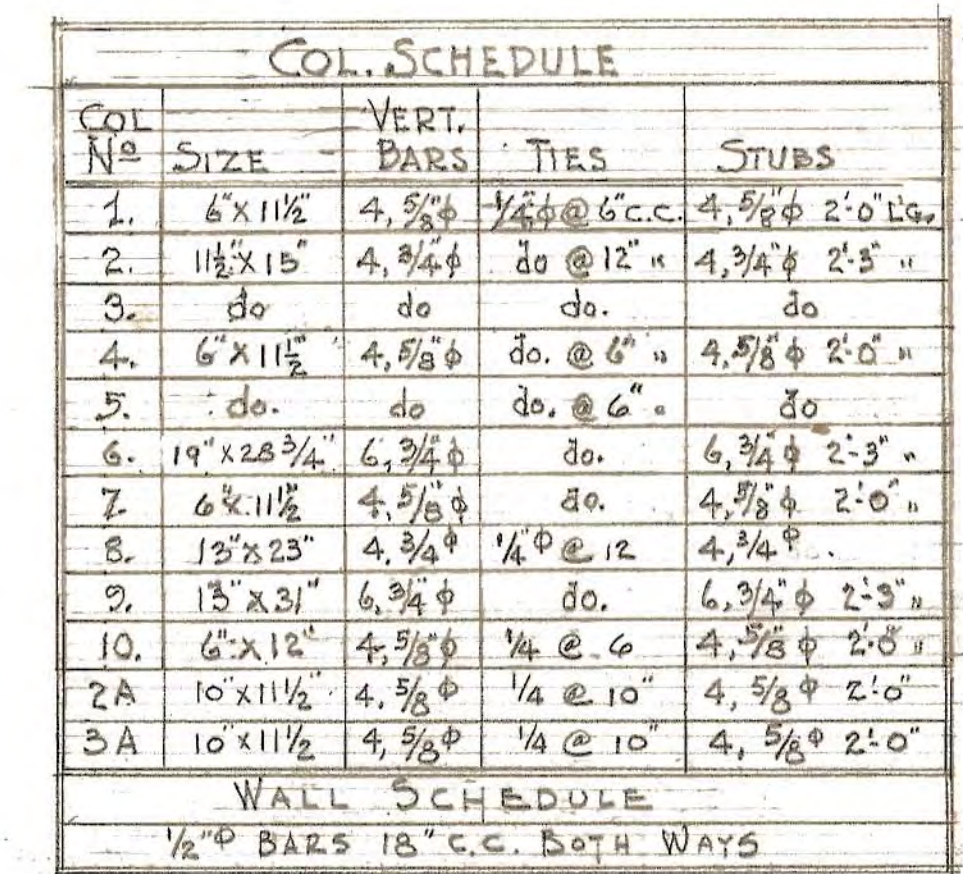 COL. SCHEDULE
COL Nº SIZE VERT. BARS TIES STUBS
1. 6"X 11½" 4, 5/8"ϕ 1/4"ϕ @ 6"C.C. 4, 5/8"ϕ 2'-0" L'G.
2. 11½"X 15" 4, 3/4"ϕ do @ 12" " 4, 3/4"ϕ 2'-3" "
3. do do do. do
4. 6"X 11½" 4, 5/8"ϕ do. @ 6" " 4, 5/8"ϕ 2'-0" "
5. do. do do. @ 6" " do
6. 19"X 28 3/4" 6, 3/4"ϕ do. 6, 3/4"ϕ 2'-3" "
7. 6"X 11½" 4, 5/8"ϕ do. 4, 5/8"ϕ 2'-0" "
8. 13"X 23" 4. 3/4ϕ 1/4"ϕ @ 12 4, 3/4"ϕ .
9. 13"X 31" 6, 3/4"ϕ do. 6, 3/4"ϕ 2'-3" "
10. 6"X 12" 4, 5/8"ϕ 1/4 @ 6 4, 5/8"ϕ 2'-0" "
2A 10"X 11½" 4. 5/8ϕ 1/4 @ 10" 4, 5/8ϕ 2'-0"
3A 10"X 11½ 4, 5/8ϕ 1/4 @ 10" 4, 5/8ϕ 2'-0"
WALL SCHEDULE
1/2"ϕ BARS 18" C.C. BOTH WAYS